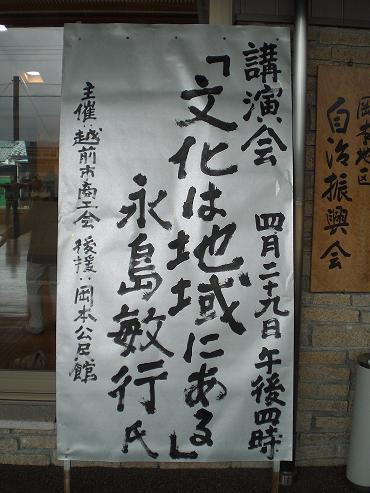 講演会 四月二十九日 午後四時
「文化は地域にある」
永島敏行氏
主催:越前市商工会 後援:岡本公民館
岡本地区
自治振興会